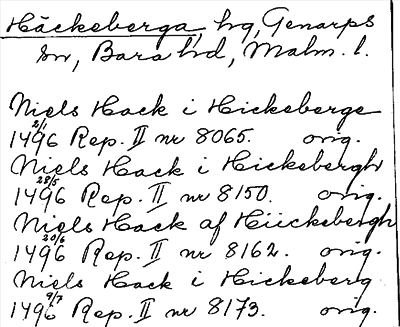 Häckeberga, hg, Genarps
sn, Bara hd, Malm. l.
Niels Hack i Hickeberge
1496 2/1 Rep. II nr 8065. orig.
Niels Hack i Hickebergh
1496 28/5 Rep. II nr 8150. orig.
Niels Hack af Hiickebergh
1496 20/6 Rep. II nr 8162. orig.
Niels Hack i Hickeberg
1496 9/7 Rep. II nr 8173. orig.